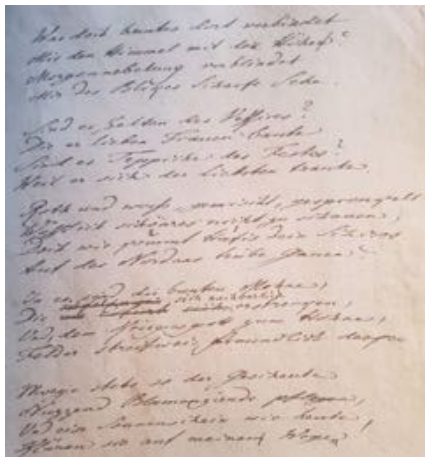 Was doch buntes dort verbindet
Mir den Himmel mit der Höhe?
Morgennebelung verblindet
Mir des Blickes scharfe Sehe.
Sind es Zelten des Vesires?
Die er lieben Frauen baute
Sind es Teppiche des Festes?
Weil er sich der Liebsten traute.
Roth und weiss, gemischt, gesprenkelt
Wüsst ich schönres nicht zu schauen,
Doch wie kommt Hafis dein Schiras
Auf des Nordens trübe Gauen?
Ja es sind die bunten Mohne,
Die sich nachbarlich erstrecken,
Und dem Kriegesgott zum Hohne,
Felder streifweis freundlich decken
Moege stets so der Gescheute
Nutzend Blumenzierde pflegen,
Und ein Sonnenschein wie heute,
Klären sie auf meinen Wegen